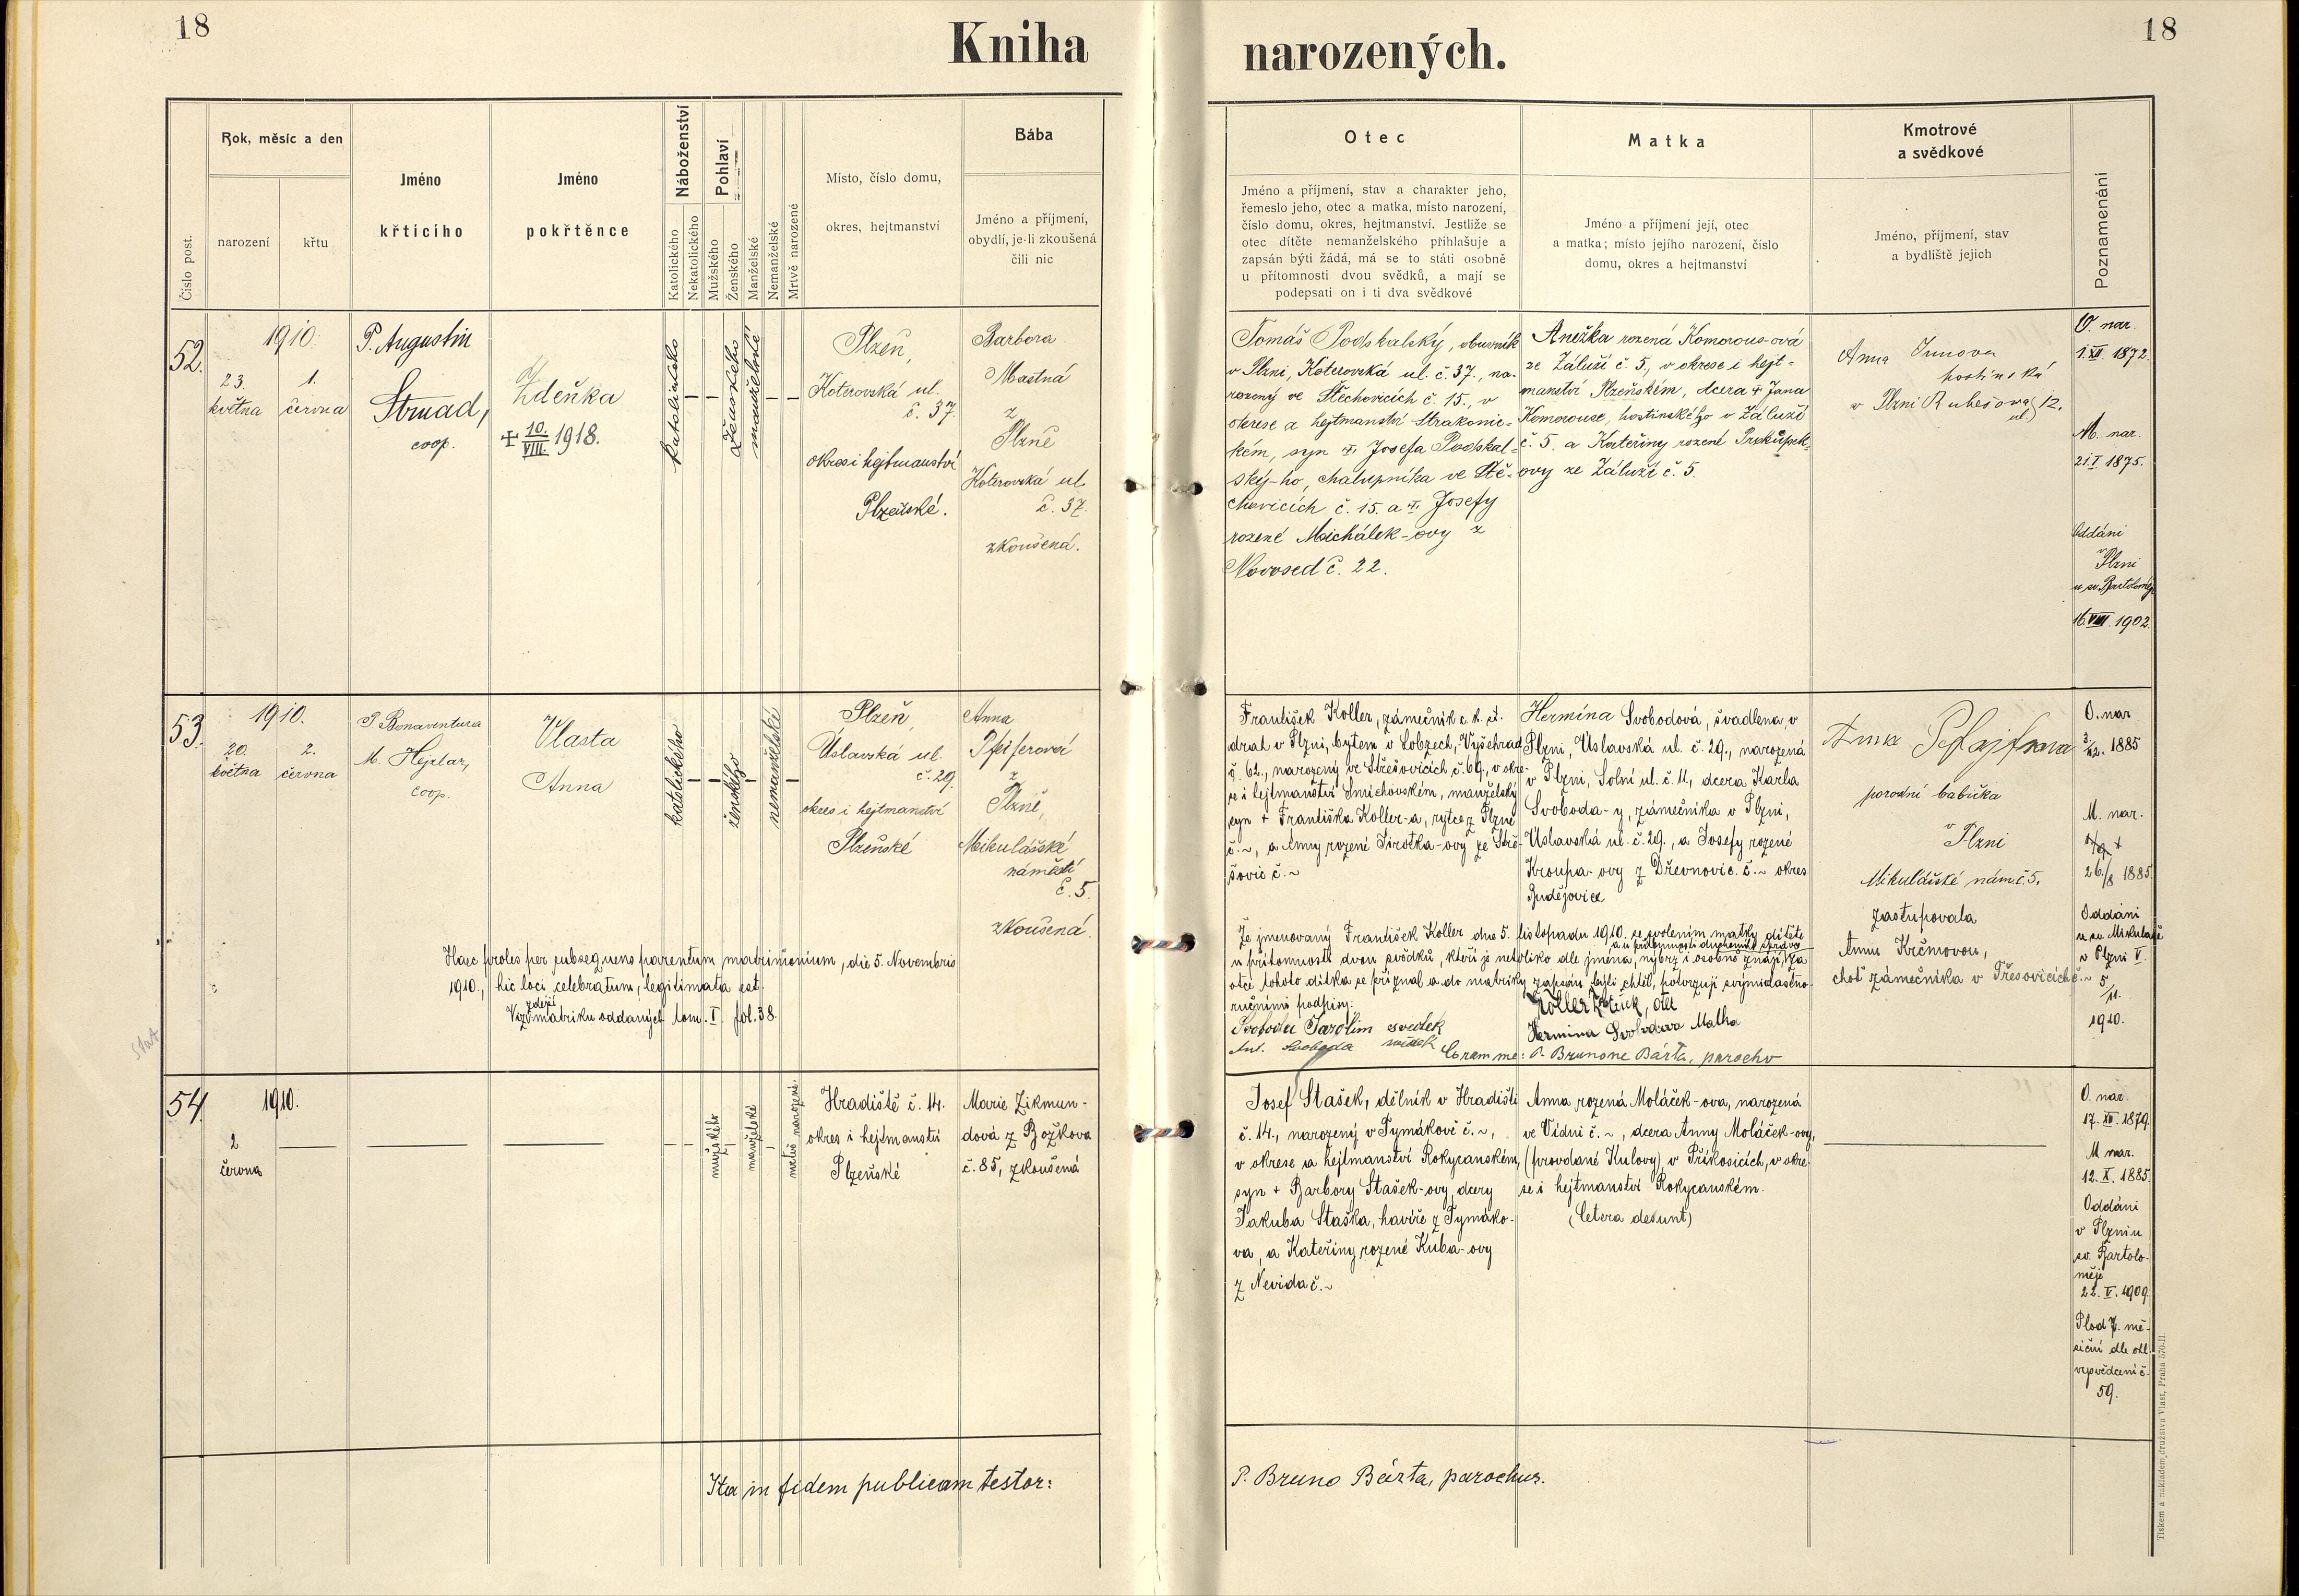 18
Kniha
narozených.
18
Číslo post.
Rok, měsíc a den
narození
křtu
Jméno
křtícího
Jméno
pokřtěnce
Náboženství
Katolického
Nekatolického
Pohlaví
Mužského
Ženského
Manželské
Nemanželské
Mrtvě narozené
Místo, číslo domu,
okres, hejtmanství
Bába
Jméno a příjmení,
obydlí, je-li zkoušená
čili nic
Otec
Jméno a příjmení, stav a charakter jeho,
řemeslo jeho, otec a matka, místo narození,
číslo domu, okres, hejtmanství. Jestliže se
otec dítěte nemanželského přihlašuje a
zapsán býti žádá, má se to státi osobně
u přítomnosti dvou svědků, a mají se
podepsati on i ti dva svědkové
Matka
Jméno a příjmení její, otec
a matka; místo jejího narození, číslo
domu, okres a hejtmanství
Kmotrové
a svědkové
Jméno, příjmení, stav
a bydliště jejich
Poznamenání
52.
1910.
23.
května
1.
června
P. Augustin
Strnad,
coop.
Zdeňka
+ 10./VIII. 1918.
katolického
ženského
manželské
Plzeň,
Koterovská ul.
č. 37.
okres i hejtmanství
Plzeňské.
Barbora
Mastná
z
Plzně
Koterovská ul.
č. 37.
zkoušená.
Tomáš Podskalský, obuvník
v Plzni, Koterovská ul. č. 37., na-
rozený ve Stěchovicích č. 15., v
okrese a hejtmanství Strakonic-
kém, syn + Josefa Podskal-
ský-ho, chalupníka ve Stě-
chovicích č. 15. a + Josefy
rozené Michálek-ovy z
Novosed č. 22.
Anežka rozená Komorous-ová
ze Záluží č. 5., v okrese i hejt-
manství Plzeňském, dcera + Jana
Komorouse, hostinského v Záluží
č. 5. a Kateřiny rozené Prokůpek-
ovy ze Záluží č. 5.
Anna
hostinská
v Plzni Rubešova ul. 12.
O. nar.
1. XII. 1872.
M. nar.
21. I. 1875.
Oddáni
v
Plzni
u sv. Bartoloměje
16. VIII. 1902.
53.
1910.
20.
května
2.
června
P. Bonaventura
M. Hejzlar,
coop.
Vlasta
Anna
katolického
ženského
nemanželské
Plzeň,
Úslavská ul.
č. 29.
okres i hejtmanství
Plzeňské
Anna
Pfeiferová
z
Plzně,
Mikulášské
náměstí
č. 5.
zkoušená.
František Koller, zámečník c. k. st.
drah v Plzni, bytem v Lobzech, Vyšehrad
č. 62., narozený ve Střešovicích č. 69., v okre-
se i hejtmanství Smíchovském, manželský
syn + Františka Koller-a, rytce z Plzně
č. ~, a Anny rozené Sirotka-ovy ze Stře-
šovic č. ~
Hermína Svobodová, švadlena, v
Plzni, Úslavská ul. č. 29., narozená
v Plzni, Solní ul. č. 11, dcera Karla
Svoboda-y, zámečníka v Plzni,
Úslavská ul. č. 29., a Josefy rozené
Kroupa-ovy z Dřevnovic. č. ~ okres
Budějovice
Anna Pfajfrova
porodní babička
v Plzni
Mikulášské nám. č. 5.
zastupovala
Annu Krčmovou,
choť zámečníka v Třešovicích č. ~
O. nar
3./12. 1885
M. nar.
26./8 1885.
Oddáni
u sv. Mikuláše
v Plzni V.
5/11.
1910.
Haec proles per subsequens parentum matrimonium, die 5. Novembris
1910., hic loci celebratum, legitimata est.
Viz zdejší matriku oddaných tom. I. fol. 38.
Že jmenovaný František Koller dne 5. listopadu 1910. se svolením matky dítěte
a u přítomnosti duchovního správce
u přítomnosti dvou svědků, kteří je netoliko dle jména, nýbrž i osobně znají, za
otce tohoto dítka se přiznal a do matriky zapsán býti chtěl, potvrzují svými vlastno-
ručními podpisy:
Koller Frant., otec
Svoboda Jarolím svědek
Hermina Svobodova Matka
Ant. Svoboda svědek
Coram me: P. Brunone Bárta, parocho
54.
1910.
2
června
mužského
manželské
mrtvě narozené.
Hradiště č. 14.
okres i hejtmanství
Plzeňské
Marie Zikmun-
dová z Božkova
č. 85, zkoušená
Josef Stašek, dělník v Hradišti
č. 14., narozený v Tymákově č. ~,
v okrese a hejtmanství Rokycanském,
syn + Barbory Stašek-ovy, dcery
Jakuba Staška, havíře z Tymáko-
va, a Kateřiny rozené Kuba-ovy
z Nevida č. ~
Anna rozená Moláček-ova, narozená
ve Vídni č. ~, dcera Anny Moláček-ovy,
(provdané Kulovy), v Příkosicích, v okre-
se i hejtmanství Rokycanském.
(Cetera desunt)
O. nar.
17. XII. 1879.
M nar.
12. X. 1885.
Oddáni
v Plzni u
sv. Bartolo-
měje
22. V. 1909.
Plod 7. mě-
síční dle ohl.
vysvědčení č.
59.
Ita in fidem publicam testor:
P. Bruno Bárta, parochus.
Tiskem a nákladem družstva Vlast, Praha 570-II.